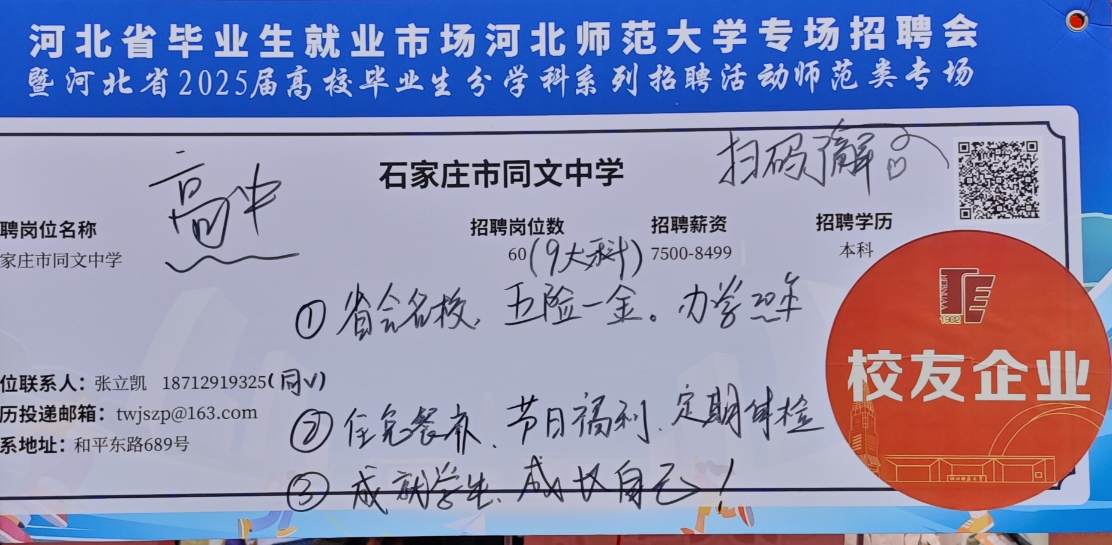 河北省毕业生就业市场河北师范大学专场招聘会
暨河北省2025届高校毕业生分学科系列招聘活动师范类专场
高中
石家庄市同文中学
扫码了解
聘岗位名称
招聘岗位数
招聘薪资
招聘学历
家庄市同文中学
60(9大科)
7500-8499
本科
①省会名校，五险一金。办学20年
位联系人：张立凯 18712919325(同V)
历投递邮箱：twjszp@163.com
②住免餐补、节日福利、定期体检
系地址：和平东路689号
③成就学生、成长自己！
1902
校友企业